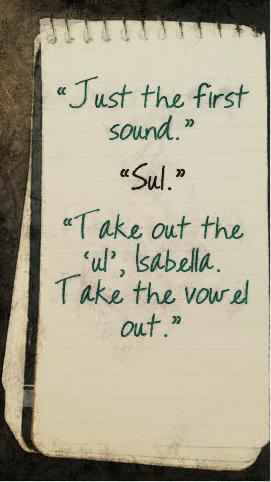 “Just the first
sound.”
“Sul.”
“Take out the
‘ul’, Isabella.
Take the vowel
out.”